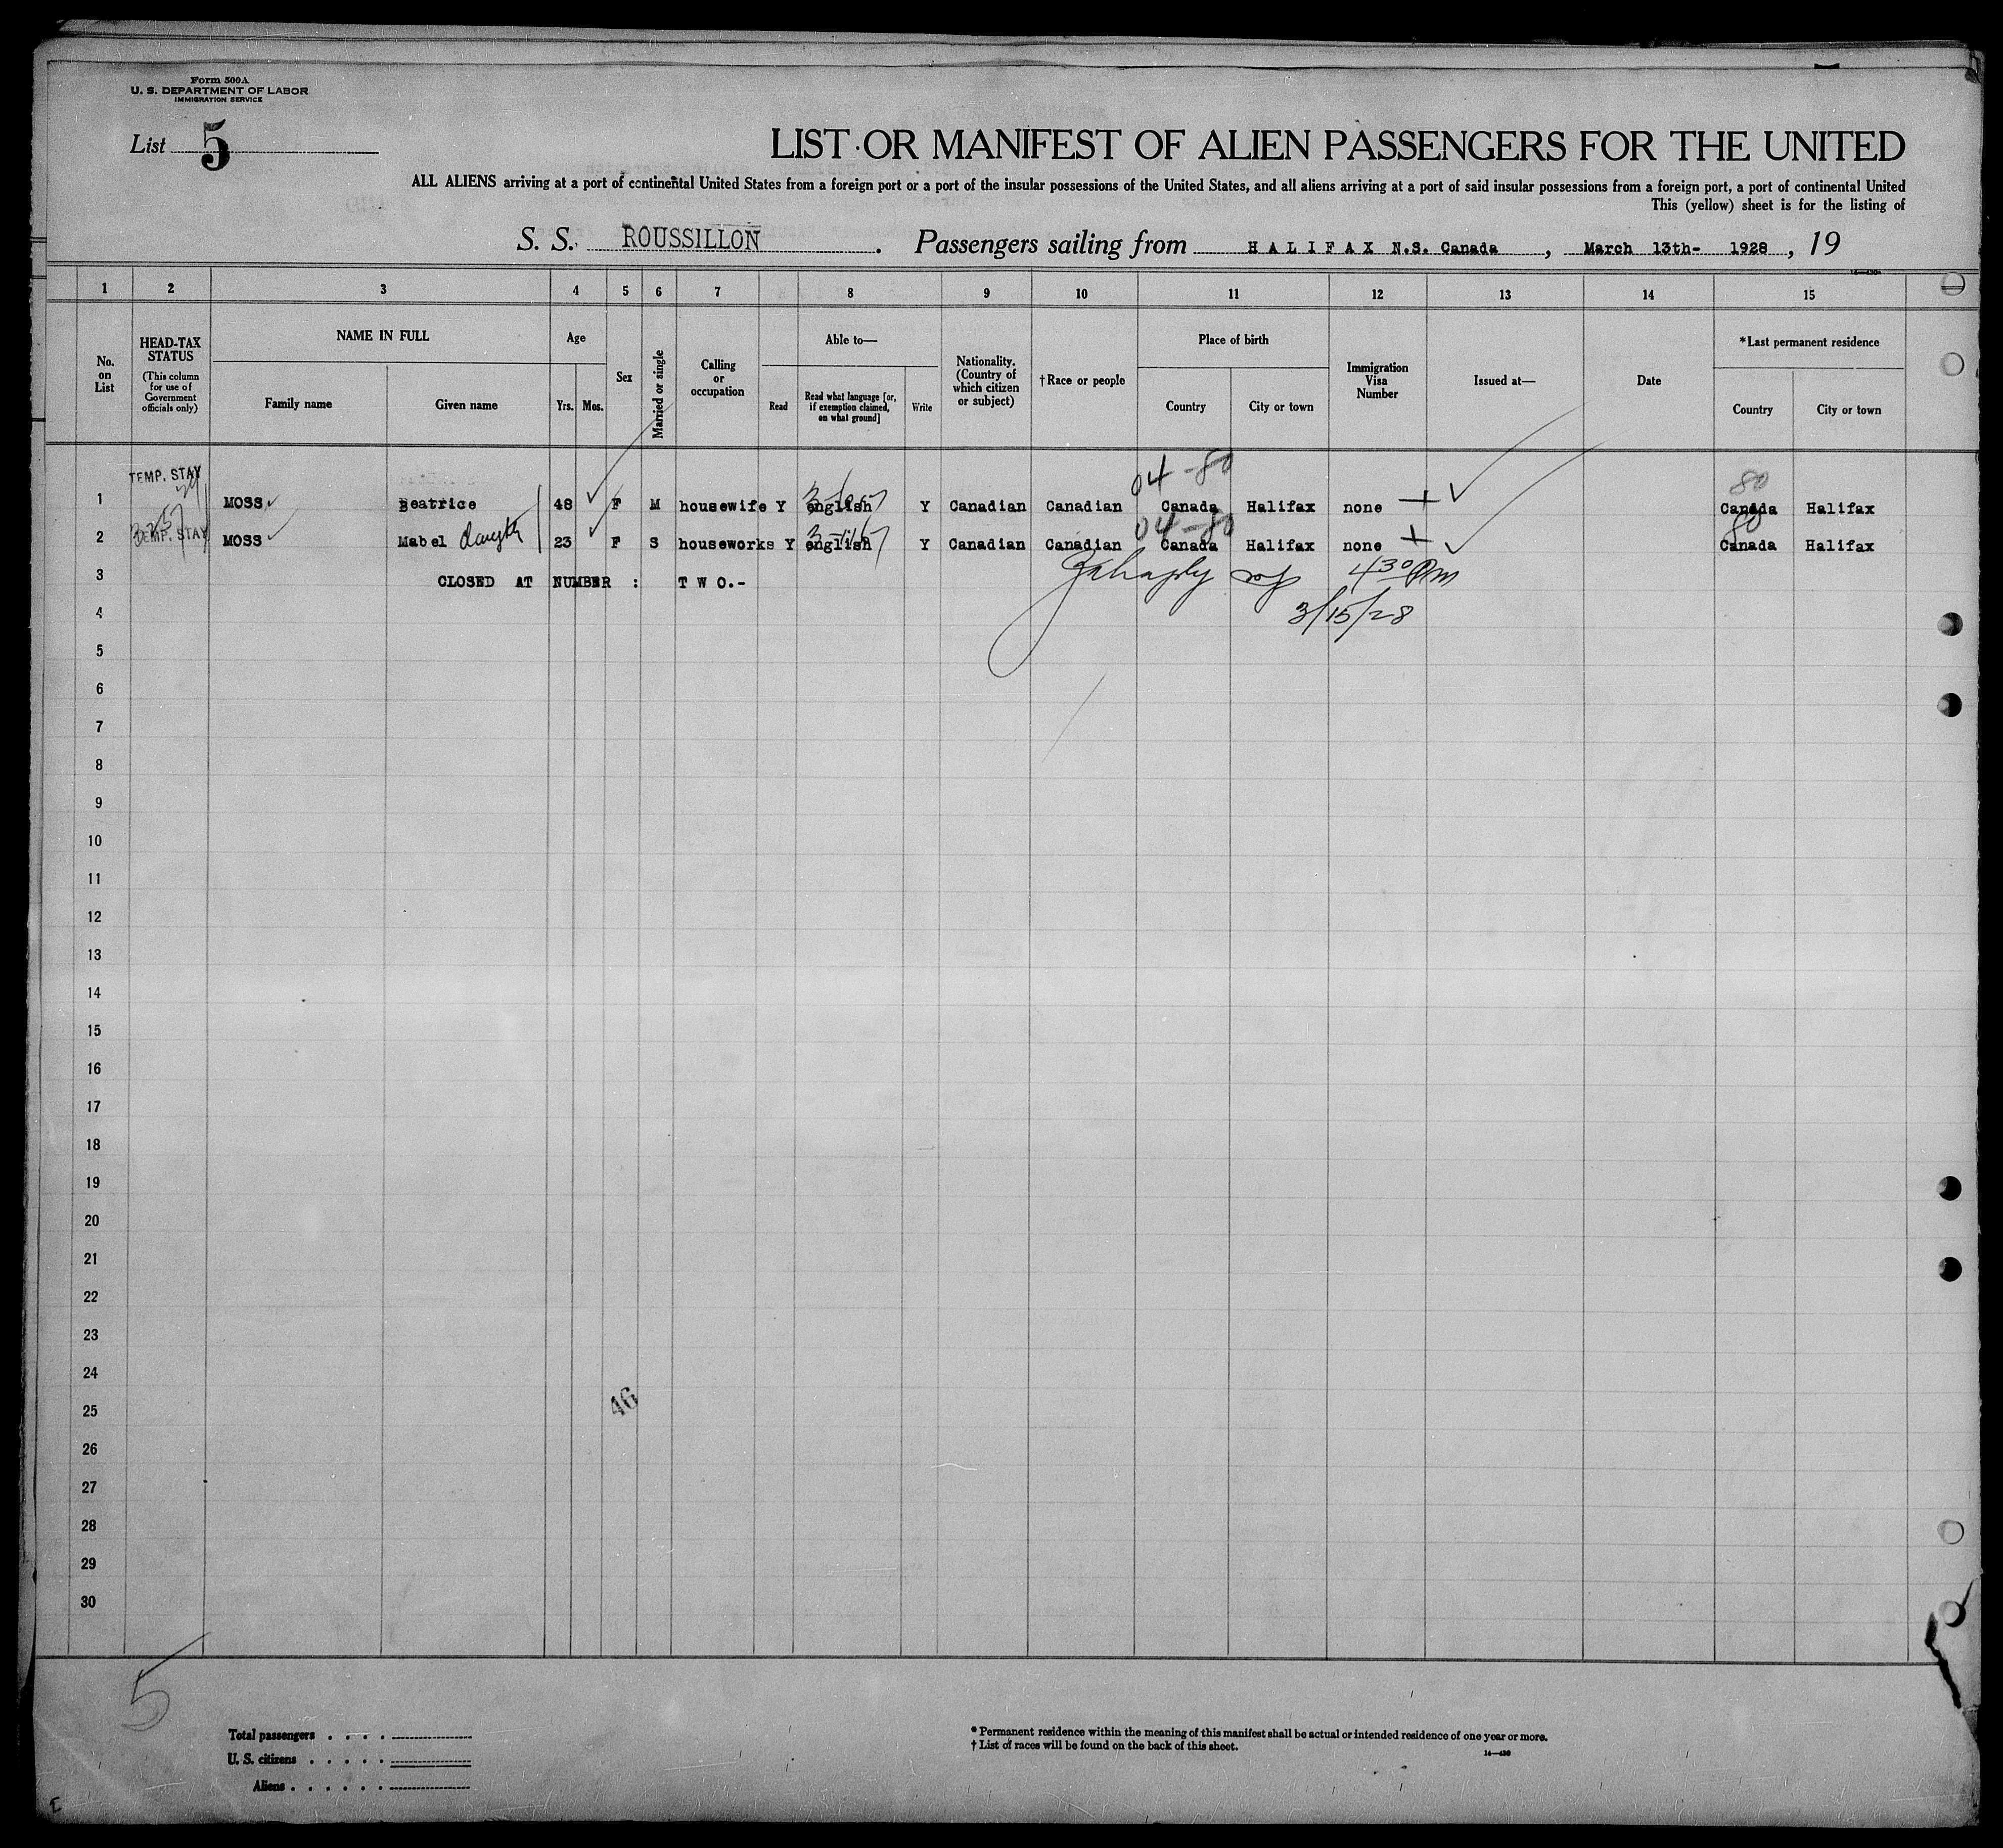 Form 500A
U. S. DEPARTMENT OF LABOR
IMMIGRATION SERVICE
List 5
LIST OR MANIFEST OF ALIEN PASSENGERS FOR THE UNITED
ALL ALIENS arriving at a port of continental United States from a foreign port or a port of the insular possessions of the United States, and all aliens arriving at a port of said insular possessions from a foreign port, a port of continental United
This (yellow) sheet is for the listing of
S. S. ROUSSILLON. Passengers sailing from HALIFAX N.S. Canada, March 13th- 1928, 19
1 2 3 4 5 6 7 8 9 10 11 12 13 14 15
No. on List
HEAD-TAX STATUS (This column for use of Government officials only)
NAME IN FULL
Family name
Given name
Age
Yrs. Mos.
Sex
Married or single
Calling or occupation
Able to—
Read
Read what language [or, if exemption claimed, on what ground]
Write
Nationality. (Country of which citizen or subject)
†Race or people
Place of birth
Country
City or town
Immigration Visa Number
Issued at—
Date
*Last permanent residence
Country
City or town
TEMP. STAY
04-80 80
1 MOSS Beatrice 48 F M housewife Y english Y Canadian Canadian Canada Halifax none Canada Halifax
TEMP. STAY 04-80 80
2 MOSS Mabel 23 F S houseworks Y english Y Canadian Canadian Canada Halifax none Canada Halifax
3 CLOSED AT NUMBER : T W O.- 4 30 PM
4 3/15/28
5
6
7
8
9
10
11
12
13
14
15
16
17
18
19
20
21
22
23
24
46
25
26
27
28
29
30
5
Total passengers . . . .
U. S. citizens . . . . .
Aliens . . . . . .
* Permanent residence within the meaning of this manifest shall be actual or intended residence of one year or more.
† List of races will be found on the back of this sheet.